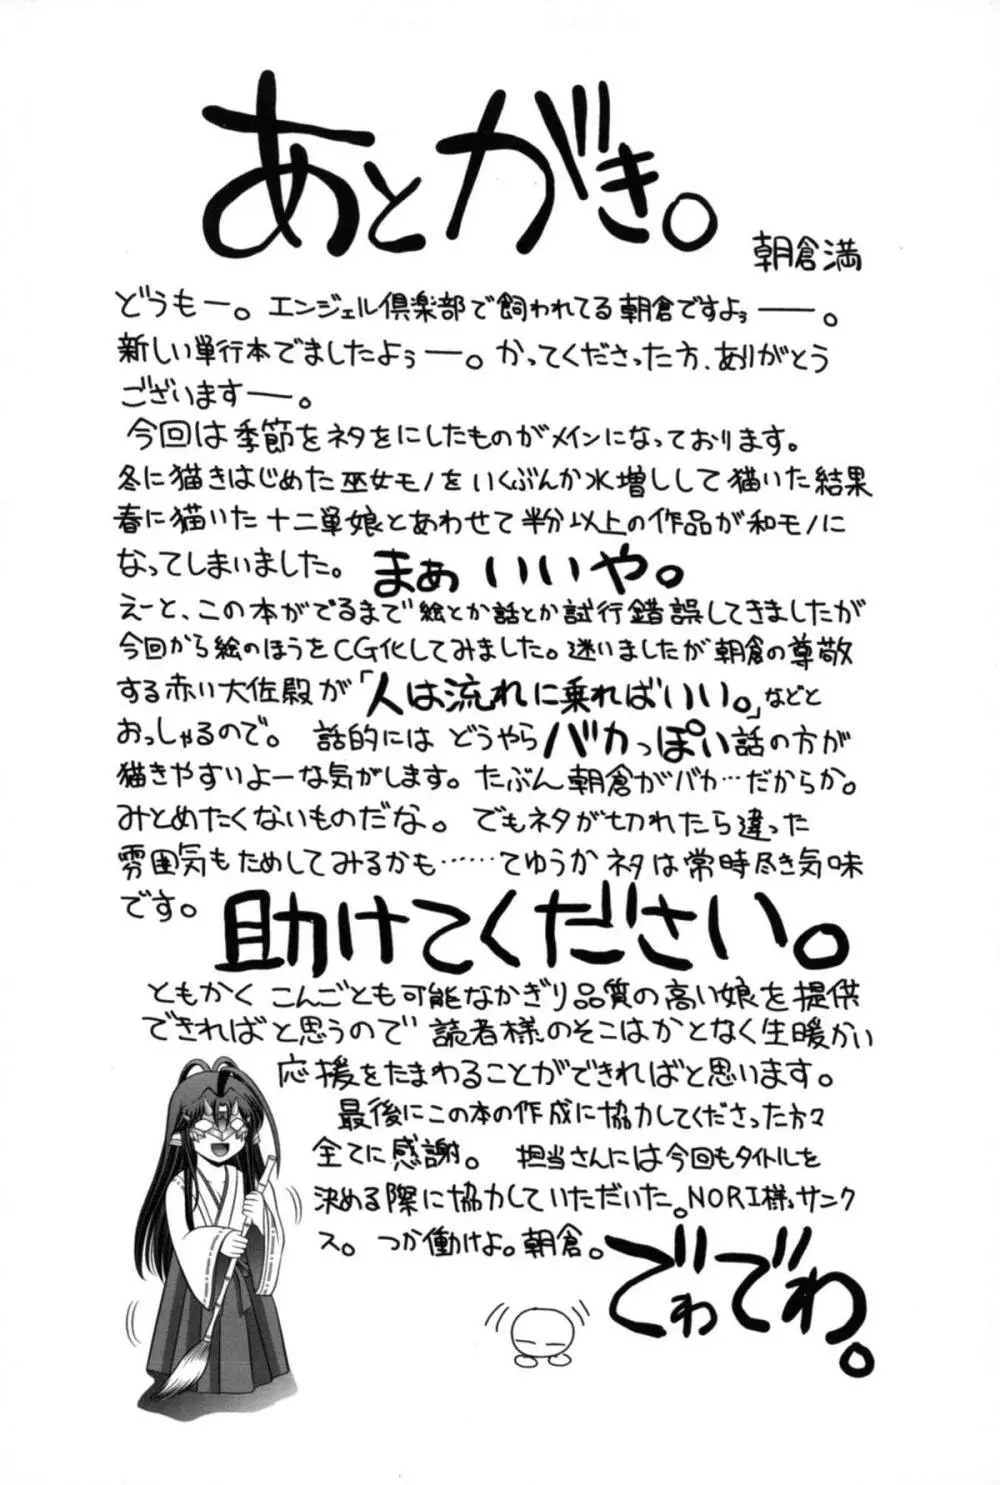 あとがき。
朝倉満
どうもー。エンジェル倶楽部で飼われてる朝倉ですよぅ――。
新しい単行本でましたよぅ―。かってくださった方、ありがとう
ございます―。
今回は季節をネタをにしたものがメインになっております。
冬に猫きはじめた巫女モノをいくぶんか水増しして猫いた結果
春に猫いた十二単娘とあわせて半分以上の作品が和モノに
なってしまいました。まぁいいや。
えーと、この本がでるまで絵とか話とか試行錯誤してきましたが
今回から絵のほうをCG化してみました。迷いましたが朝倉の尊敬
する赤い大佐殿が「人は流れに乗ればいい。」などと
おっしゃるので。話的にはどうやらバカっぽい話の方が
猫きやすいよーな気がします。たぶん朝倉がバカ…だからか。
みとめたくないものだな。でもネタが切れたら違った
雰囲気もためしてみるかも……てゆうかネタは常時尽き気味
です。助けてください。
ともかくこんごとも可能なかぎり品質の高い娘を提供
できればと思うので読者様のそこはかとなく生暖かい
応援をたまわることができればと思います。
最後にこの本の作成に協力してくださった方々
全てに感謝。担当さんには今回もタイトルを
決める際に協力していただいた。NORI様、サンク
ス。つか働けよ。朝倉。
でわでわ。